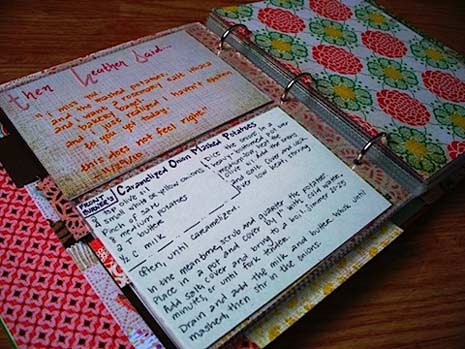 then Heather Said...
"I miss you
and the mashed potatoes,
and I want
a bakery
and I just realized I haven't spoken
to you yet today
this does not feel right"
Caramelized Onion Mashed Potatoes
2 T olive oil
2 small white or yellow onions
Pinch of salt
medium potatoes
3 T butter
½ C milk
Dice the onions in a
heavy-bottomed pot over
medium-low heat the
olive oil. Add the onions
and salt. Cover and cook
over low heat, stirring
often, until caramelized
In the meantime, scrub and quarter the potatoes.
Place in a pot and cover by 1" with cold water.
Add salt, cover and bring to a boil. Simmer 20-25
minutes, or until fork tender.
Drain and add the milk and butter. Whisk until
mashed, then stir in the onions.